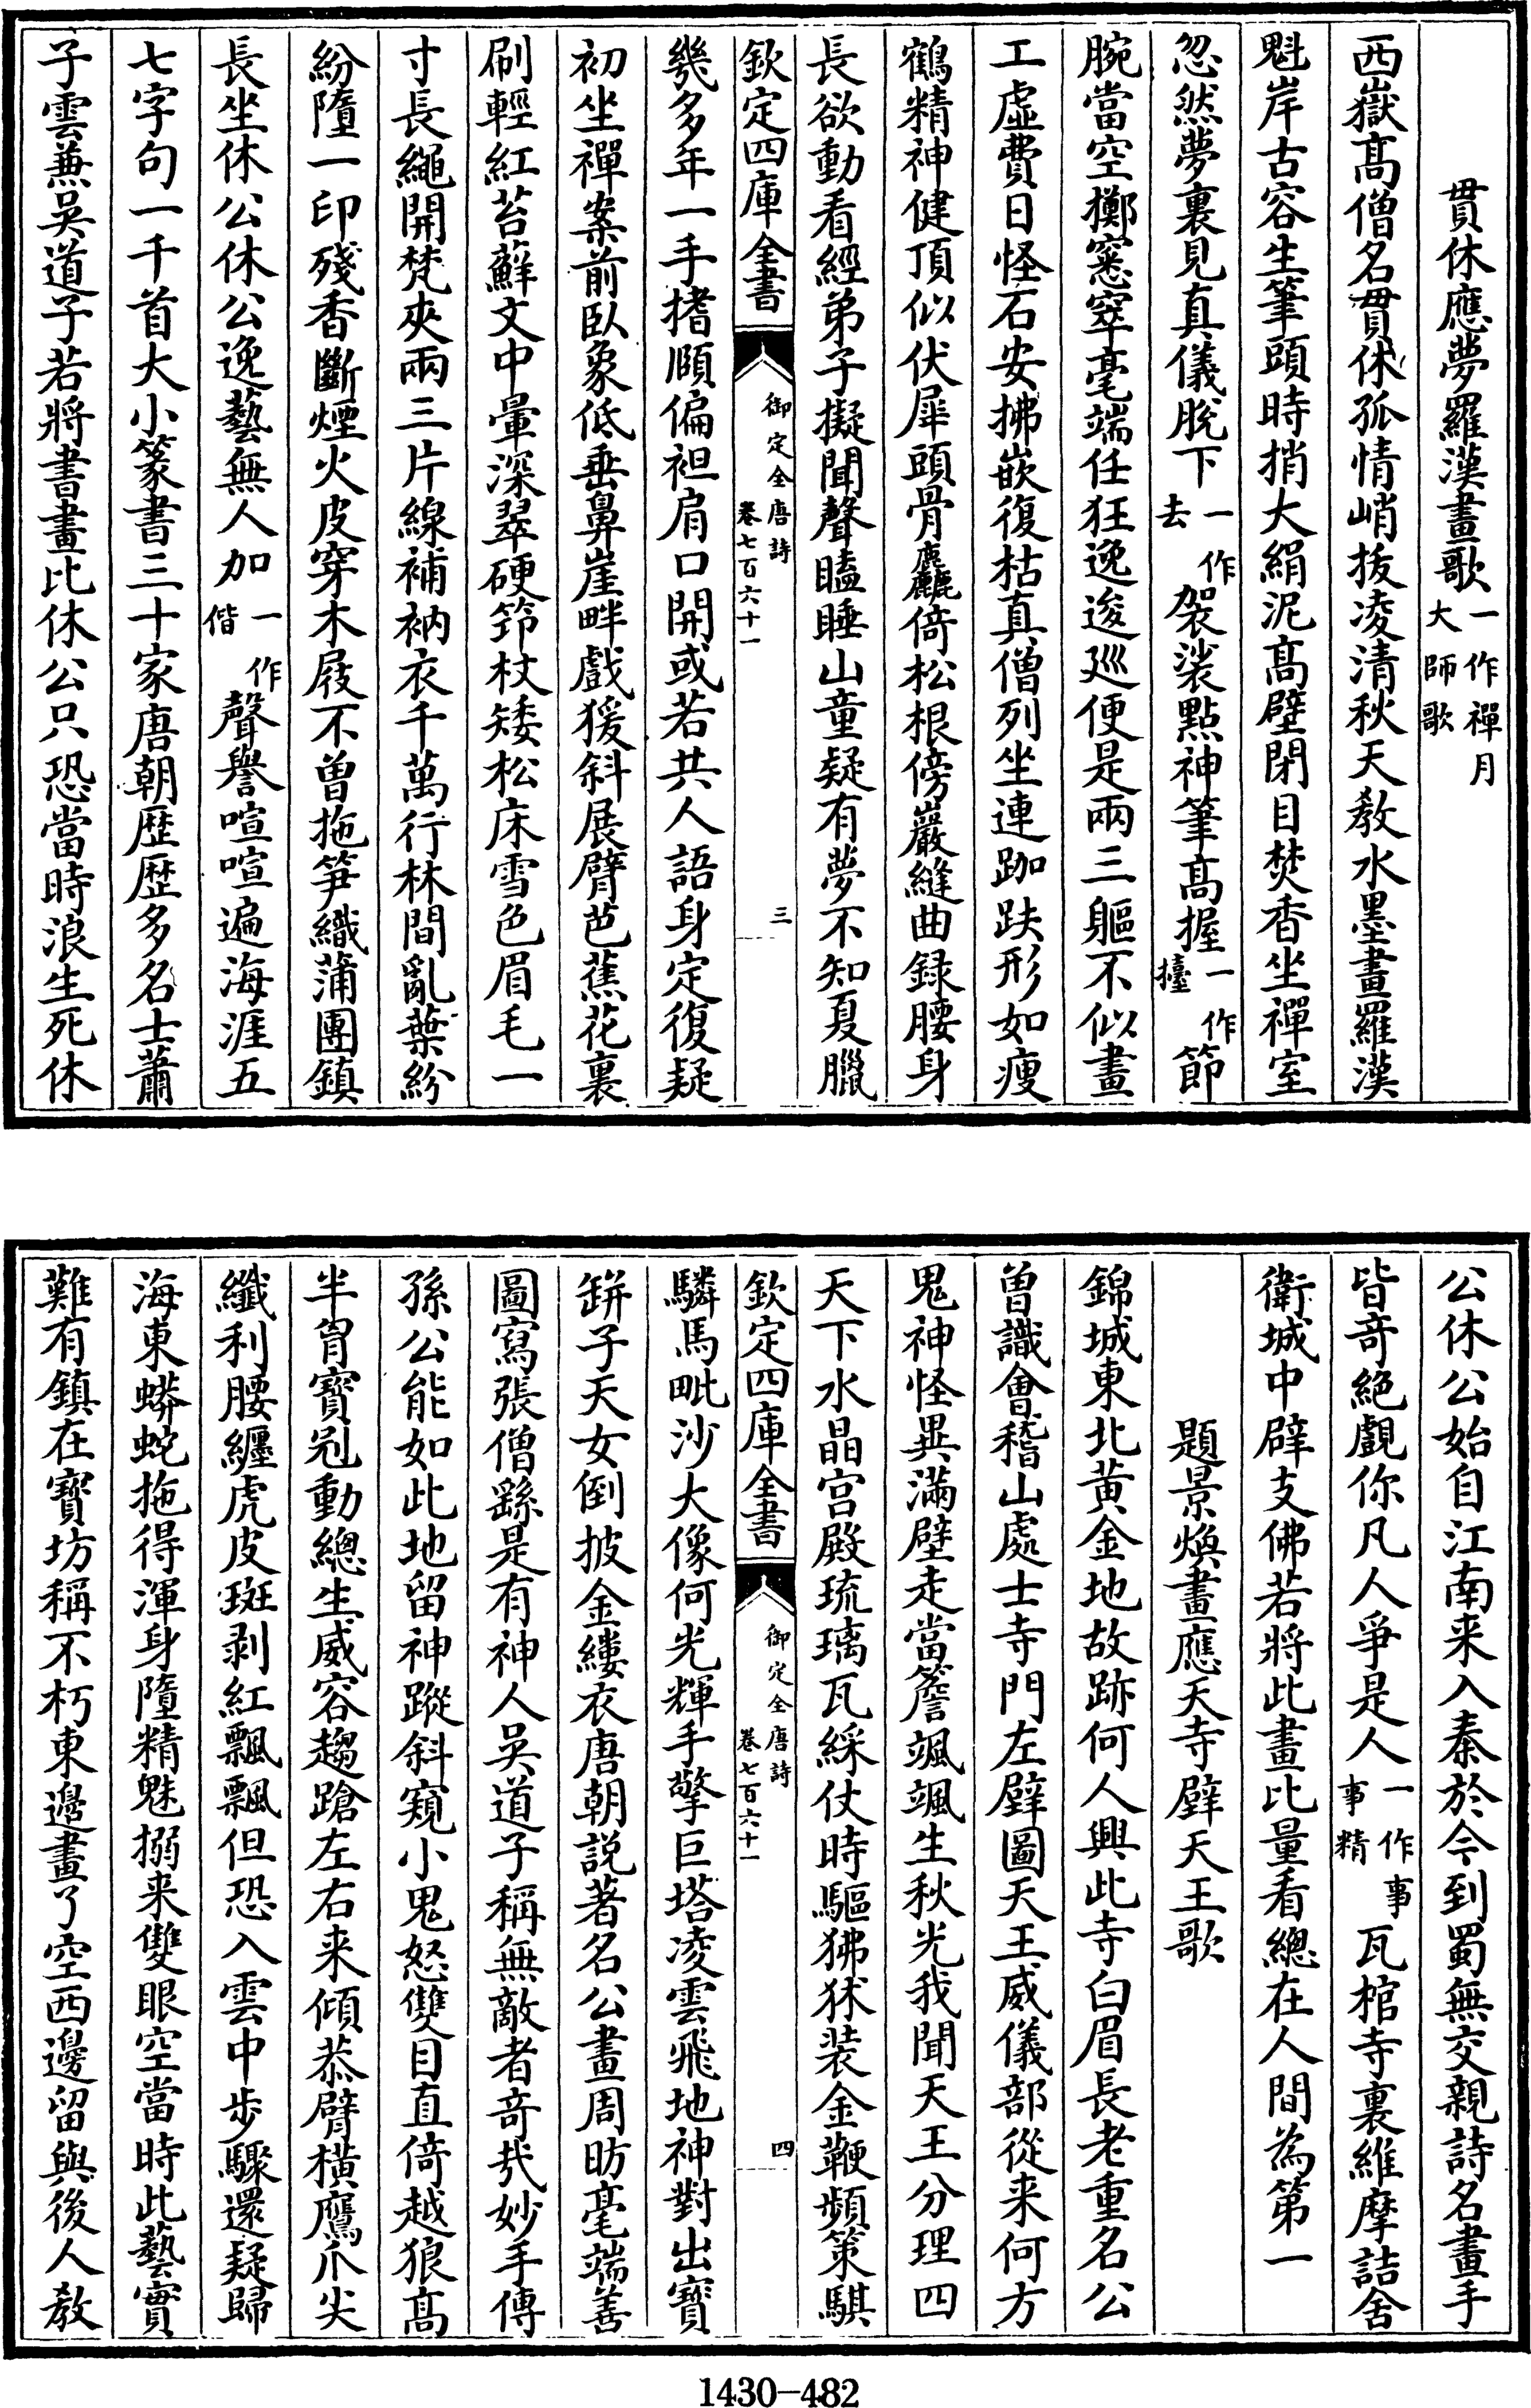 貫休應夢羅漢畫歌一作禪月大師歌
西嶽髙僧名貫休孤情峭拔凌清秋天教水墨畫羅漢
魁岸古容生筆頭時捎大絹泥髙壁閉目焚香坐禪室
忽然夢裏見真儀脫下一作去袈裟點神筆髙握一作擡節
腕當空擲窸窣毫端任狂逸逡巡便是兩三軀不似畫
工虛費日怪石安拂嵌復枯真僧列坐連跏趺形如瘦
鶴精神健頂似伏犀頭骨麤倚松根傍巖縫曲録腰身
長欲動看經弟子擬聞聲瞌睡山童疑有夢不知夏臘
欽定四庫全書 御定全唐詩 卷七百六十一 三
幾多年一手搘頤偏袒肩口開或若共人語身定復疑
初坐禪案前臥象低垂鼻崖畔戲猨斜展臂芭蕉花裏
刷輕紅苔蘚文中暈深翠硬筇杖矮松床雪色眉毛一
寸長繩開梵夾兩三片線補衲衣千萬行林間亂葉紛
紛墮一印殘香斷煙火皮穿木屐不曾拖笋織蒲團鎮
長坐休公休公逸藝無人加一作偕聲譽喧喧遍海涯五
七字句一千首大小篆書三十家唐朝歷歷多名士蕭
子雲兼吳道子若將書畫比休公只恐當時浪生死休
公休公始自江南来入秦於今到蜀無交親詩名畫手
皆竒絶覷你凡人爭是人一作事事精瓦棺寺裏維摩詰舍
衛城中辟支佛若將此畫比量看總在人間為第一
題景煥畫應天寺壁天王歌
錦城東北黃金地故跡何人興此寺白眉長老重名公
曾識會稽山處士寺門左壁圖天王威儀部從来何方
鬼神怪異滿壁走當簷颯颯生秋光我聞天王分理四
天下水晶宮殿琉璃瓦綵仗時驅狒𤝞装金鞭頻策騏
欽定四庫全書 御定全唐詩 卷七百六十一 四
驎馬毗沙大像何光輝手擎巨塔凌雲飛地神對出寶
缾子天女倒披金縷衣唐朝説著名公畫周昉毫端善
圖寫張僧繇是有神人吳道子稱無敵者竒㢤妙手傳
孫公能如此地留神蹤斜窺小鬼怒雙目直倚越狼髙
半胷寶冠動總生威容趨蹌左右来傾恭臂橫鷹爪尖
纖利腰纏虎皮斑剥紅飄飄但恐入雲中步驟還疑歸
海東蟒蛇拖得渾身墮精魅搦来雙眼空當時此藝實
難有鎮在寶坊稱不朽東邉畫了空西邊留與後人教
1430—482